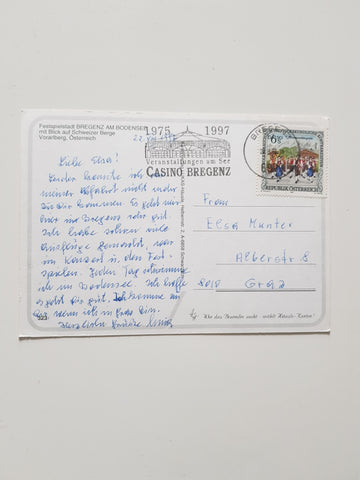 Festspielstadt BREGENZ AM BODENSEE
mit Blick auf Schweizer Berge
Vorarlberg, Österreich
1975 1997
Veranstaltungen am See
CASINO BREGENZ
REPUBLIK ÖSTERREICH
Liebe Elsa!
Leider konnte ich
meiner Abfahrt nicht mehr
zu Dir kommen. Es geht mir
hier in Bregenz sehr gut.
Ich habe schon viele
Ausflüge gemacht, war
im Konzert u. den Fest-
spielen. Jeden Tag schwimme
ich im Bodensee. Ich hoffe
es geht Dir gut. Ich komme
wenn ich in Graz bin.
Herzliche Grüße
Frau
Elsa Munter
Alberstr 8
8010 Graz
Wer das Besondere sucht - wählt Künstle-Karten!